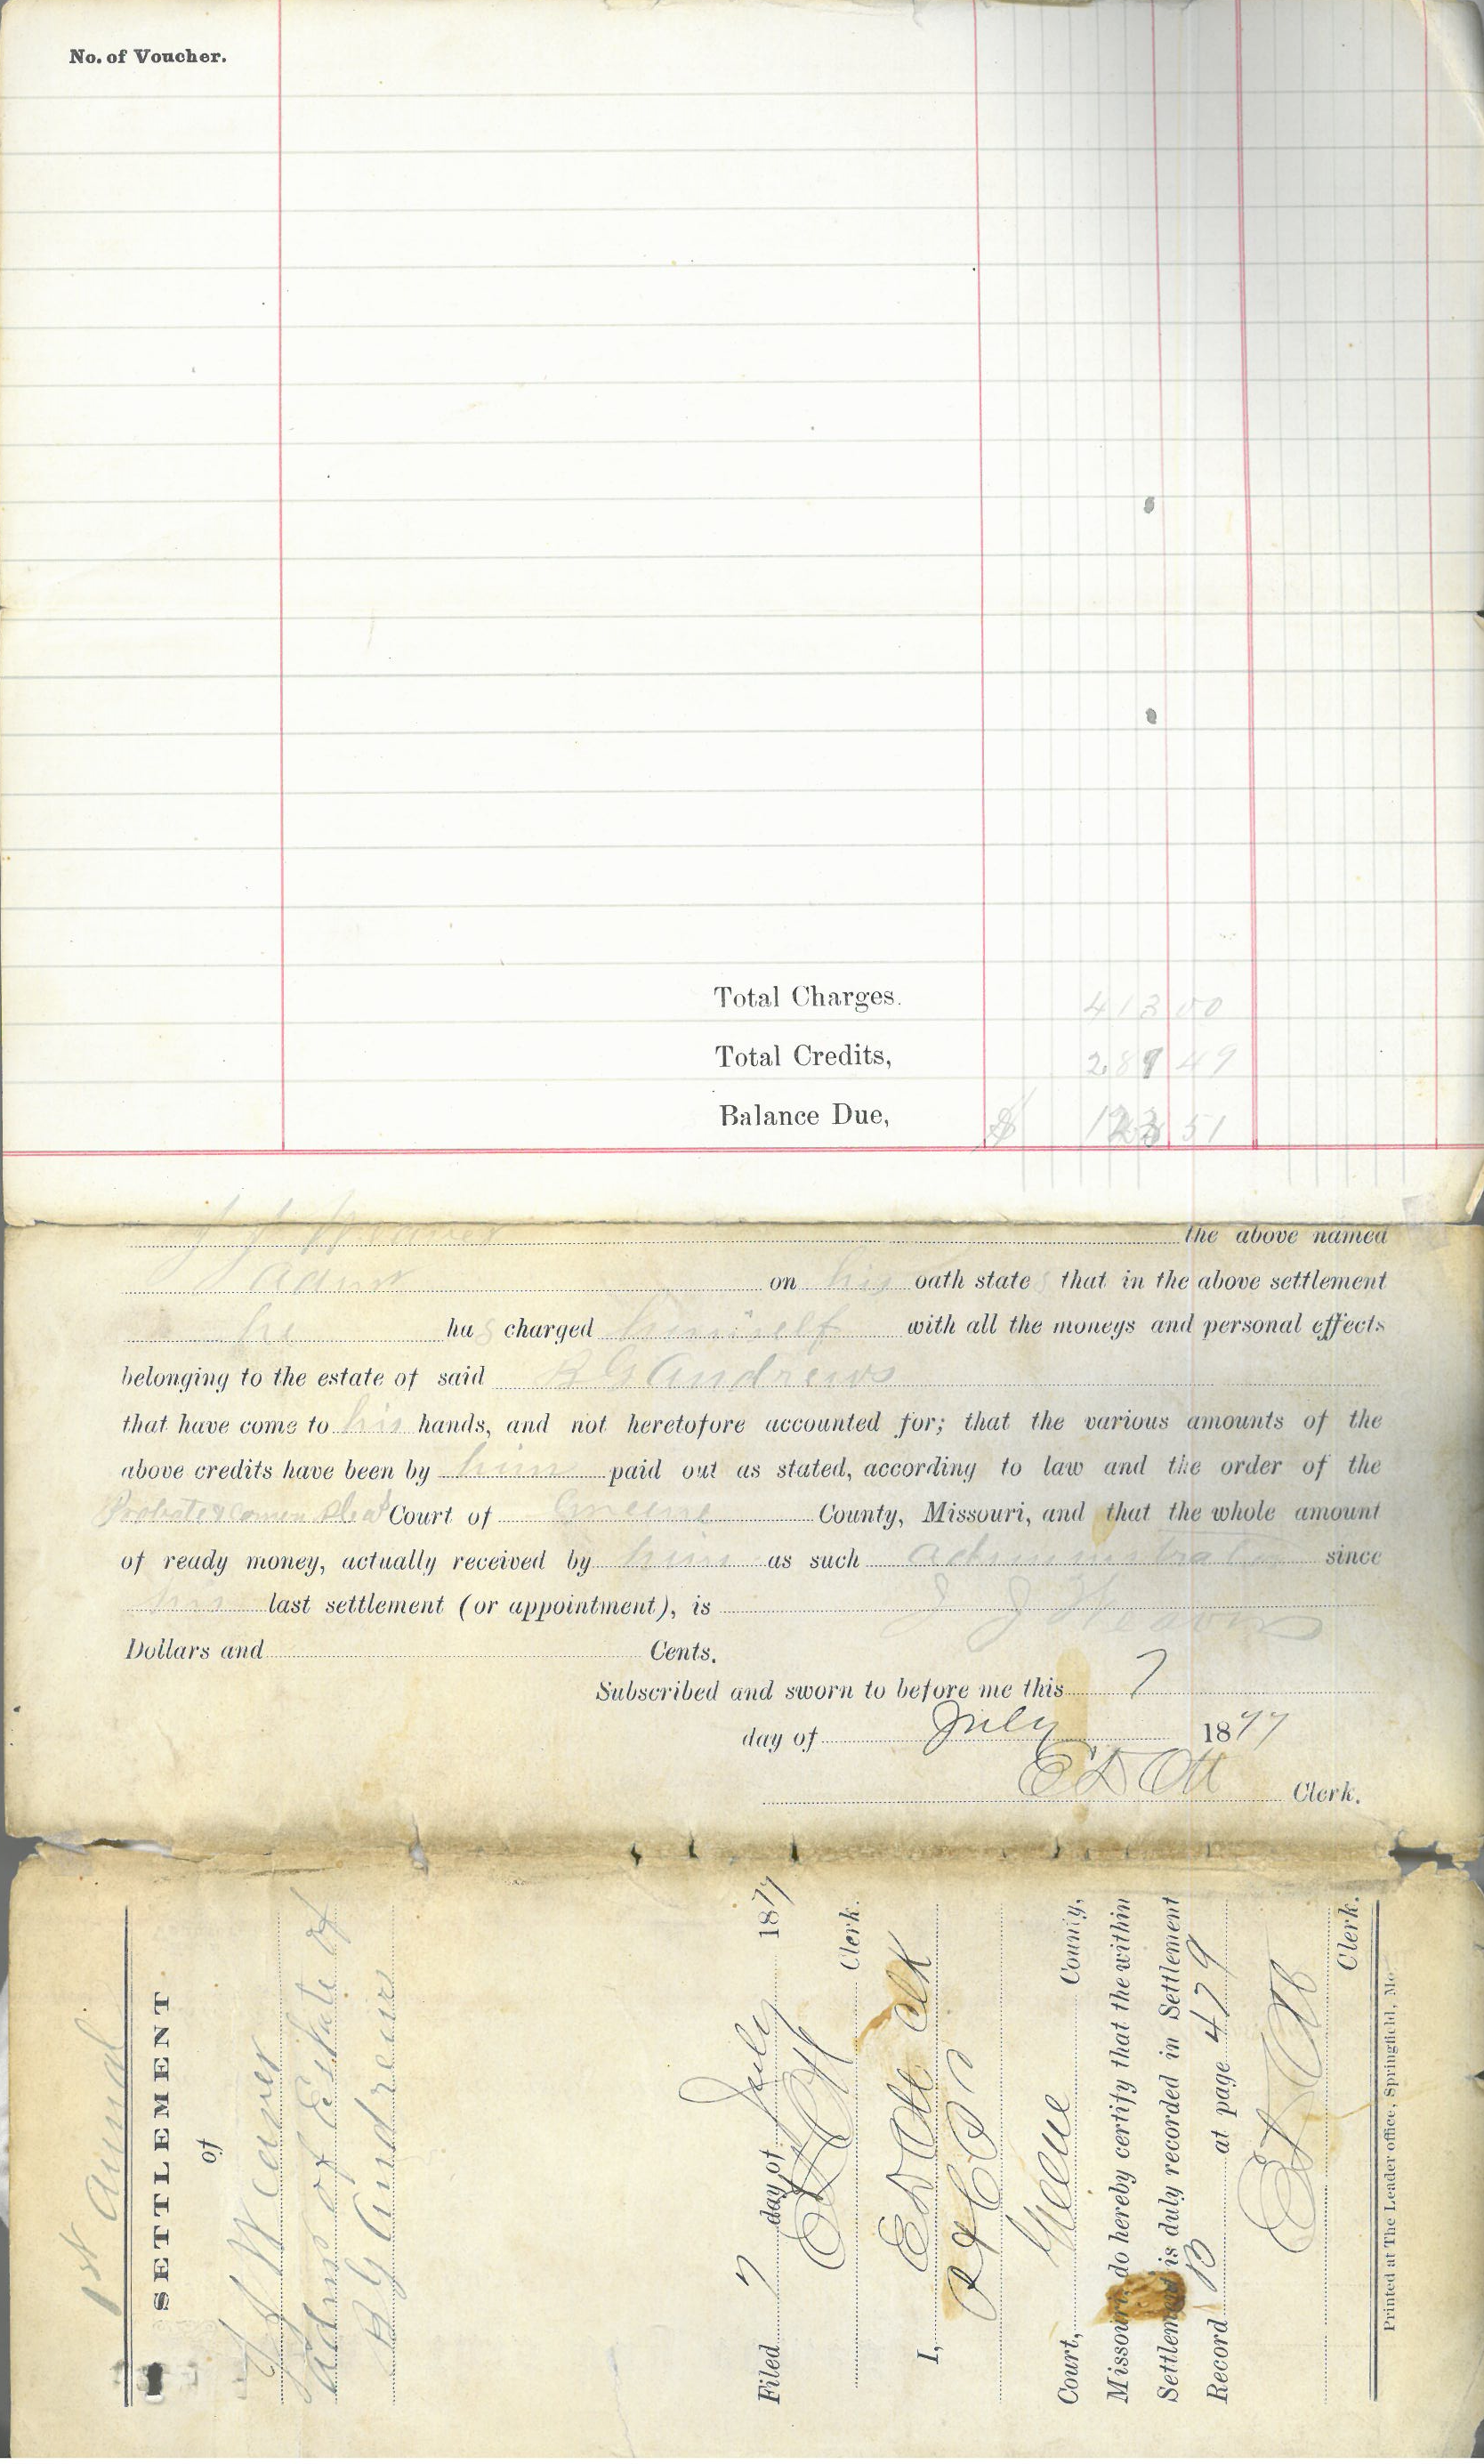 No. of Voucher.
Total Charges. 413 00
Total Credits, 289 49
Balance Due, $ 123 51
J J Weaver the above named
Admr on his oath states that in the above settlement
he has charged himself with all the moneys and personal effects
belonging to the estate of said R G Andrews
that have come to his hands, and not heretofore accounted for; that the various amounts of the
above credits have been by him paid out as stated, according to law and the order of the
Probate & comon Pleas Court of Greene County, Missouri, and that the whole amount
of ready money, actually received by him as such administrator since
his last settlement (or appointment), is
J J Weaver
Dollars and Cents.
Subscribed and sworn to before me this 7
day of July 1877
E D Ott Clerk.
1st Anual
SETTLEMENT
of
J J Weaver
Admr of Estate of
R G Andrews
Filed 7 day of July 1877
E D Ott Clerk.
I, E D Ott Clk
P & C P
Court, Greene County,
Missouri, do hereby certify that the within
Settlement is duly recorded in Settlement
Record B at page 479
E D Ott
Clerk.
Printed at The Leader office, Springfield, Mo.